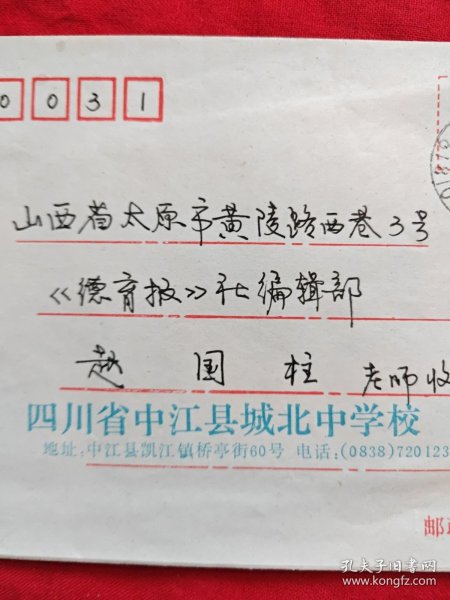 0031
山西省太原市黄陵路西巷3号
《德育报》社编辑部
赵国柱 老师收
四川省中江县城北中学校
地址:中江县凯江镇桥亭街60号 电话:(0838)720123
邮
孔夫子旧书网
www.kongfz.com